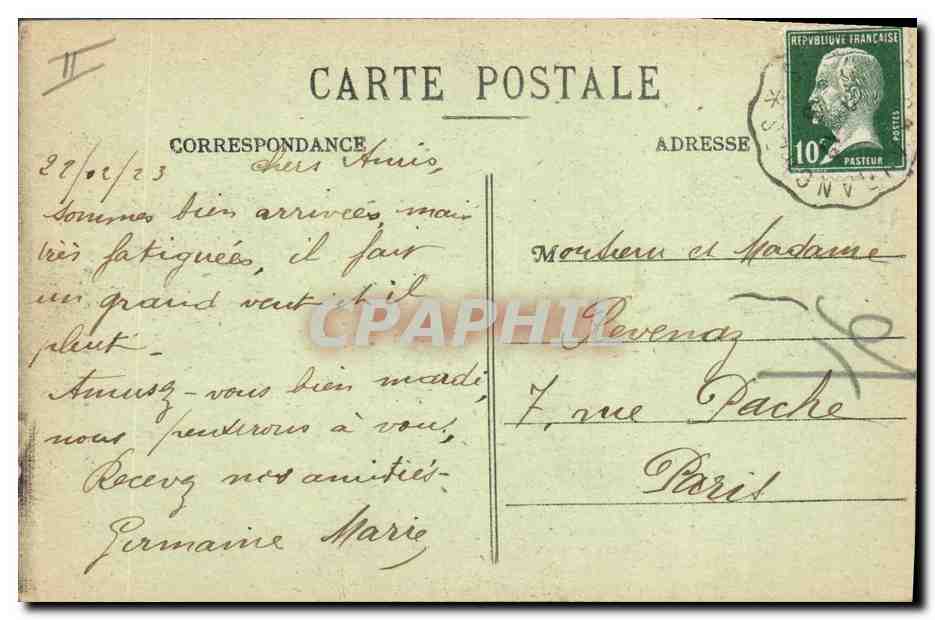 II
CARTE POSTALE
CORRESPONDANCE
ADRESSE
REPVBLIQUE FRANÇAISE
10c
POSTES
PASTEUR
22/02/23 Chers Amis,
sommes bien arrivées, mais
très fatiguées, il fait
un grand vent et il
pleut.
Amusez-vous bien mardi,
nous penserons à vous,
Recevez nos amitiés-
Germaine Marie
Monsieur et Madame
Pevenaz
7, rue Pache
Paris
CPAPHIL